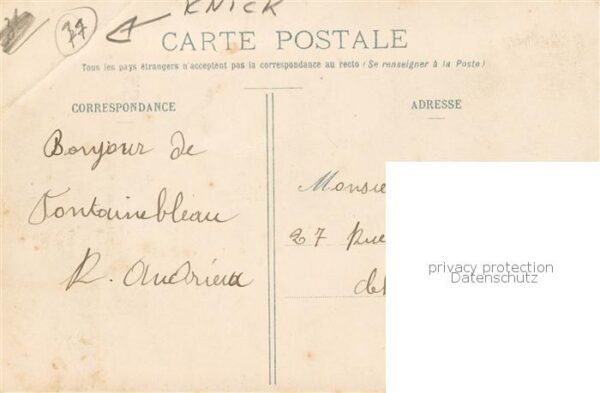 37
KNICK
CARTE POSTALE
Tous les pays étrangers n'acceptent pas la correspondance au recto (Se renseigner à la Poste)
CORRESPONDANCE
Bonjour de
Fontainebleau
R. Andrieux
ADRESSE
Monsie
27 Rue
de
privacy protection
Datenschutz